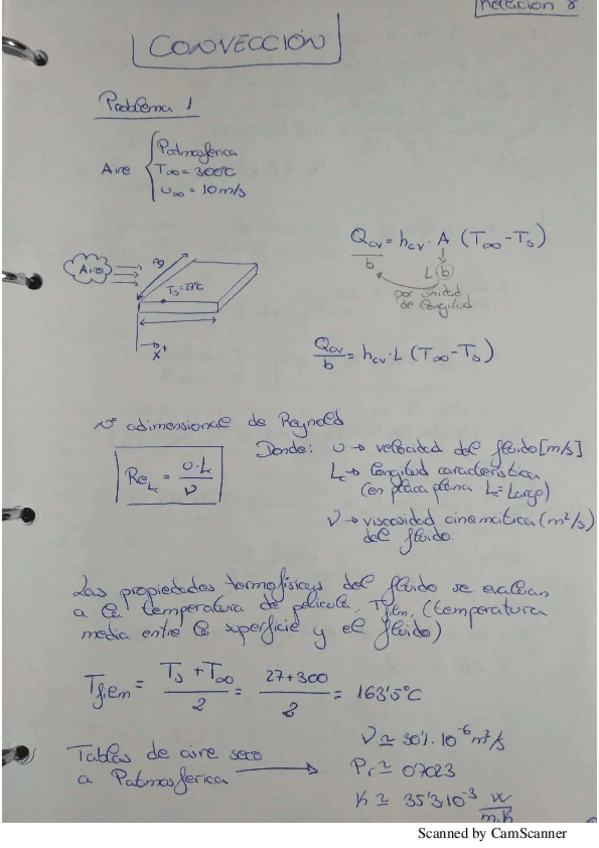 Relación 8
CONVECCIÓN
Problema 1
Aire { Patmosférica
T∞ = 300°C
u∞ = 10 m/s
Q_cv/b = h_cv · A (T∞ - Ts)
L(b)
por unidad
de longitud
Aire
Ts=27°C
x+
Q_cv/b = h_cv · L (T∞ - Ts)
nº adimensional de Reynold
Re_Lc = υ·Lc/ν
Donde: υ → velocidad del fluido [m/s]
Lc → longitud característica
(en placa plana Lc = Largo)
ν → viscosidad cinemática (m²/s)
del fluido.
Las propiedades termofísicas del fluido se evalúan
a la temperatura de película, Tfilm, (temperatura
media entre la superficie y el fluido)
Tfilm = (Ts + T∞)/2 = (27+300)/2 = 163'5°C
Tablas de aire seco
a Patmosférica →
ν ≃ 30'1·10⁻⁶ m²/s
Pr ≃ 0'7023
K ≃ 35'3·10⁻³ W/m.K
Scanned by CamScanner